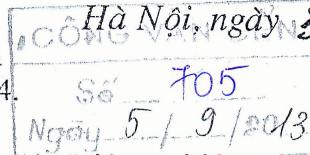 Hà Nội, ngày
CÔNG VĂN ĐẾN
4.
Số 705
Ngày 5 / 9 / 2013